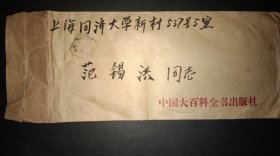 上海同济大学新村537号5室
范锡洪 同志
中国大百科全书出版社